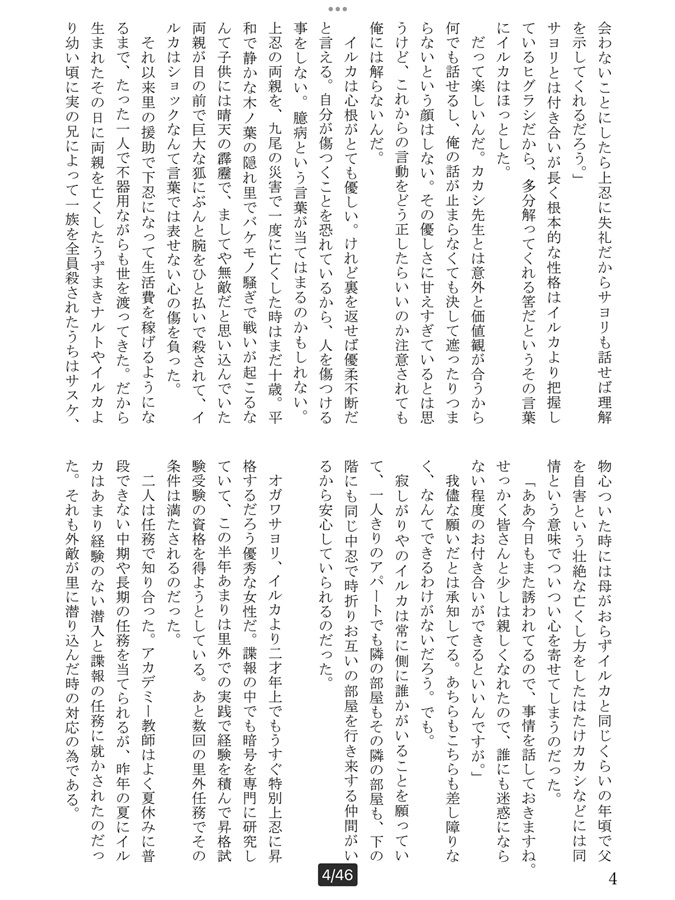 会わないことにしたら上忍に失礼だからサヨリも話せば理解
を示してくれるだろう。」
サヨリとは付き合いが長く根本的な性格はイルカより把握し
ているヒグラシだから、多分解ってくれる筈だというその言葉
にイルカはほっとした。
だって楽しいんだ。カカシ先生とは意外と価値観が合うから
何でも話せるし、俺の話が止まらなくても決して遮ったりつま
らないという顔はしない。その優しさに甘えすぎているとは思
うけど、これからの言動をどう正したらいいのか注意されても
俺には解らないんだ。
イルカは心根がとても優しい。けれど裏を返せば優柔不断だ
と言える。自分が傷つくことを恐れているから、人を傷つける
事をしない。臆病という言葉が当てはまるのかもしれない。
上忍の両親を、九尾の災害で一度に亡くした時はまだ十歳。平
和で静かな木ノ葉の隠れ里でバケモノ騒ぎで戦いが起こるな
んて子供には晴天の霹靂で、ましてや無敵だと思い込んでいた
両親が目の前で巨大な狐にぶんと腕をひと払いで殺されて、イ
ルカはショックなんて言葉では表せない心の傷を負った。
それ以来里の援助で下忍になって生活費を稼げるようにな
るまで、たった一人で不器用ながらも世を渡ってきた。だから
生まれたその日に両親を亡くしたうずまきナルトやイルカよ
り幼い頃に実の兄によって一族を全員殺されたうちはサスケ、
物心ついた時には母がおらずイルカと同じくらいの年頃で父
を自害という壮絶な亡くし方をしたはたけカカシなどには同
情という意味でついつい心を寄せてしまうのだった。
「ああ今日もまた誘われてるので、事情を話しておきますね。
せっかく皆さんと少しは親しくなれたので、誰にも迷惑になら
ない程度のお付き合いができるといいんですが。」
我儘な願いだとは承知してる。あちらもこちらも差し障りな
く、なんてできるわけがないだろう。でも。
寂しがりやのイルカは常に側に誰かがいることを願ってい
て、一人きりのアパートでも隣の部屋もその隣の部屋も、下の
階にも同じ中忍で時折りお互いの部屋を行き来する仲間がい
るから安心していられるのだった。
オガワサヨリ、イルカより二才年上でもうすぐ特別上忍に昇
格するだろう優秀な女性だ。諜報の中でも暗号を専門に研究し
ていて、この半年あまりは里外での実践で経験を積んで昇格試
験受験の資格を得ようとしている。あと数回の里外任務でその
条件は満たされるのだった。
二人は任務で知り合った。アカデミー教師はよく夏休みに普
段できない中期や長期の任務を当てられるが、昨年の夏にイル
カはあまり経験のない潜入と諜報の任務に就かされたのだっ
た。それも外敵が里に潜り込んだ時の対応の為である。
4/46
4